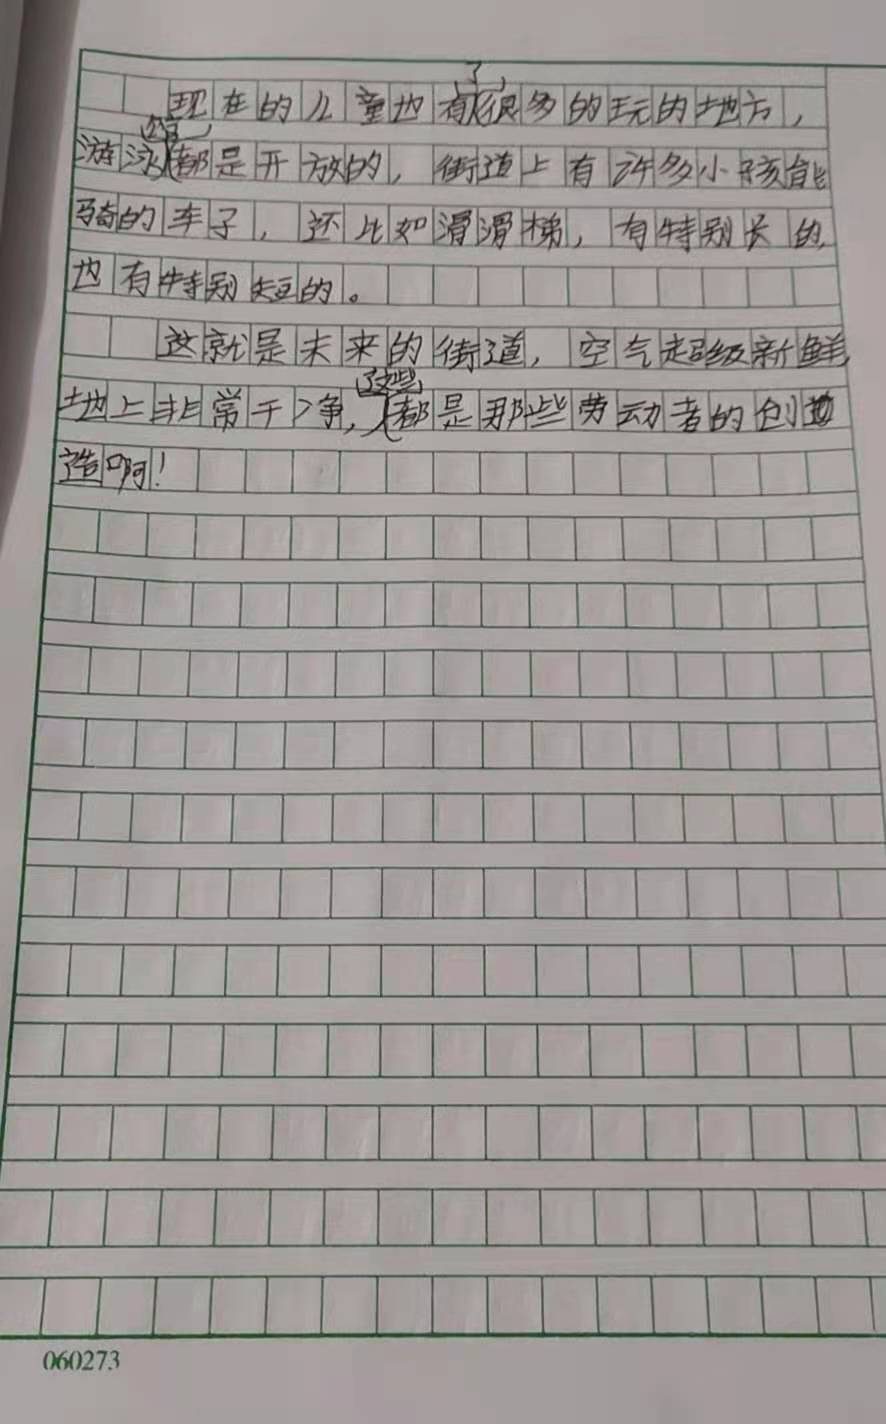 现在的儿童也有了很多的玩的地方，
游泳馆都是开放的，街道上有许多小孩能
骑的车子，还比如滑滑梯，有特别长的，
也有特别短的。
这就是未来的街道，空气超级新鲜，
地上非常干净，这些都是那些劳动者的创
造啊！
060273